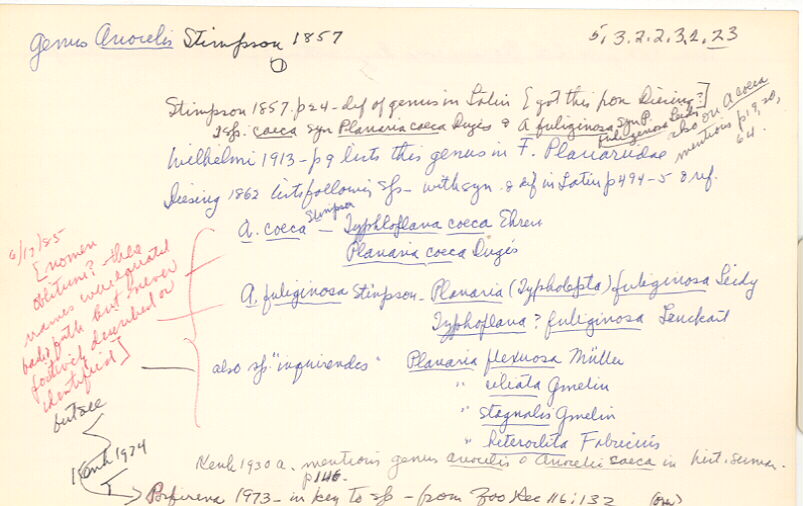 genus Anocelis Stimpson 1857
5, 3.2.2.3.1.23
1
Stimpson 1857. p24 - def of genus in Latin [I got this from Diesing?]
2 sp. caeca syn Planaria coeca Dugès & A fuliginosa syn P. fuliginosa Leidy
also on A coeca
mentions p 19, 20,
64.
Wilhelmi 1913 - p9 lists this genus in F. Planariidae
Diesing 1862 lists following sps - with syn. & def in Latin p494-5 & ref.
A. coeca Stimpson - Typhloplana coeca Ehren
Planaria coeca Dugés
A. fuliginosa Stimpson - Planaria (Typholepta) fuliginosa Leidy
Typhloplana? fuliginosa Leuckart
also sp. "inquirendes" Planaria flexuosa Müller
" ciliata Gmelin
" stagnalis Gmelin
" heteroclita Fabricius
6/17/85
[nomen
oblitum? - these
names were equated
back & forth but never
positively described or
identified]
but see
Kenk 1974
Kenk 1930 a. mentions genus anocelis & Anocelis caeca in hist. summ.
p 146.
1973 - in key to sp - from Zoo Rec 116:132 (over)